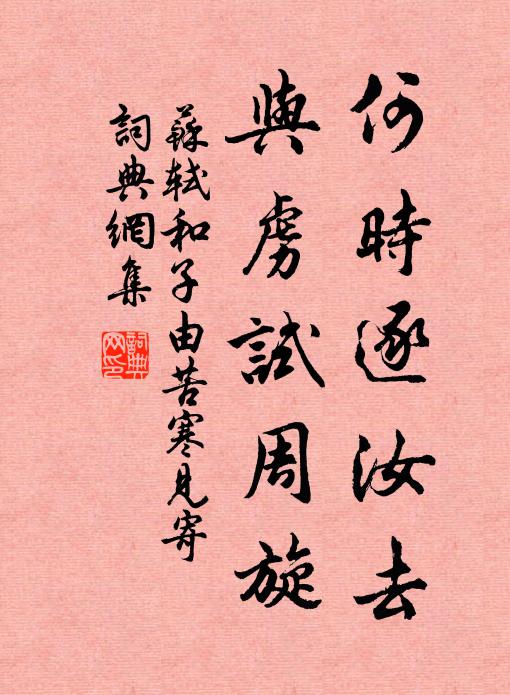 何時逐汝去
與虜試周旋
蘇軾和子由苦寒見寄
詞典網集
詞典网印